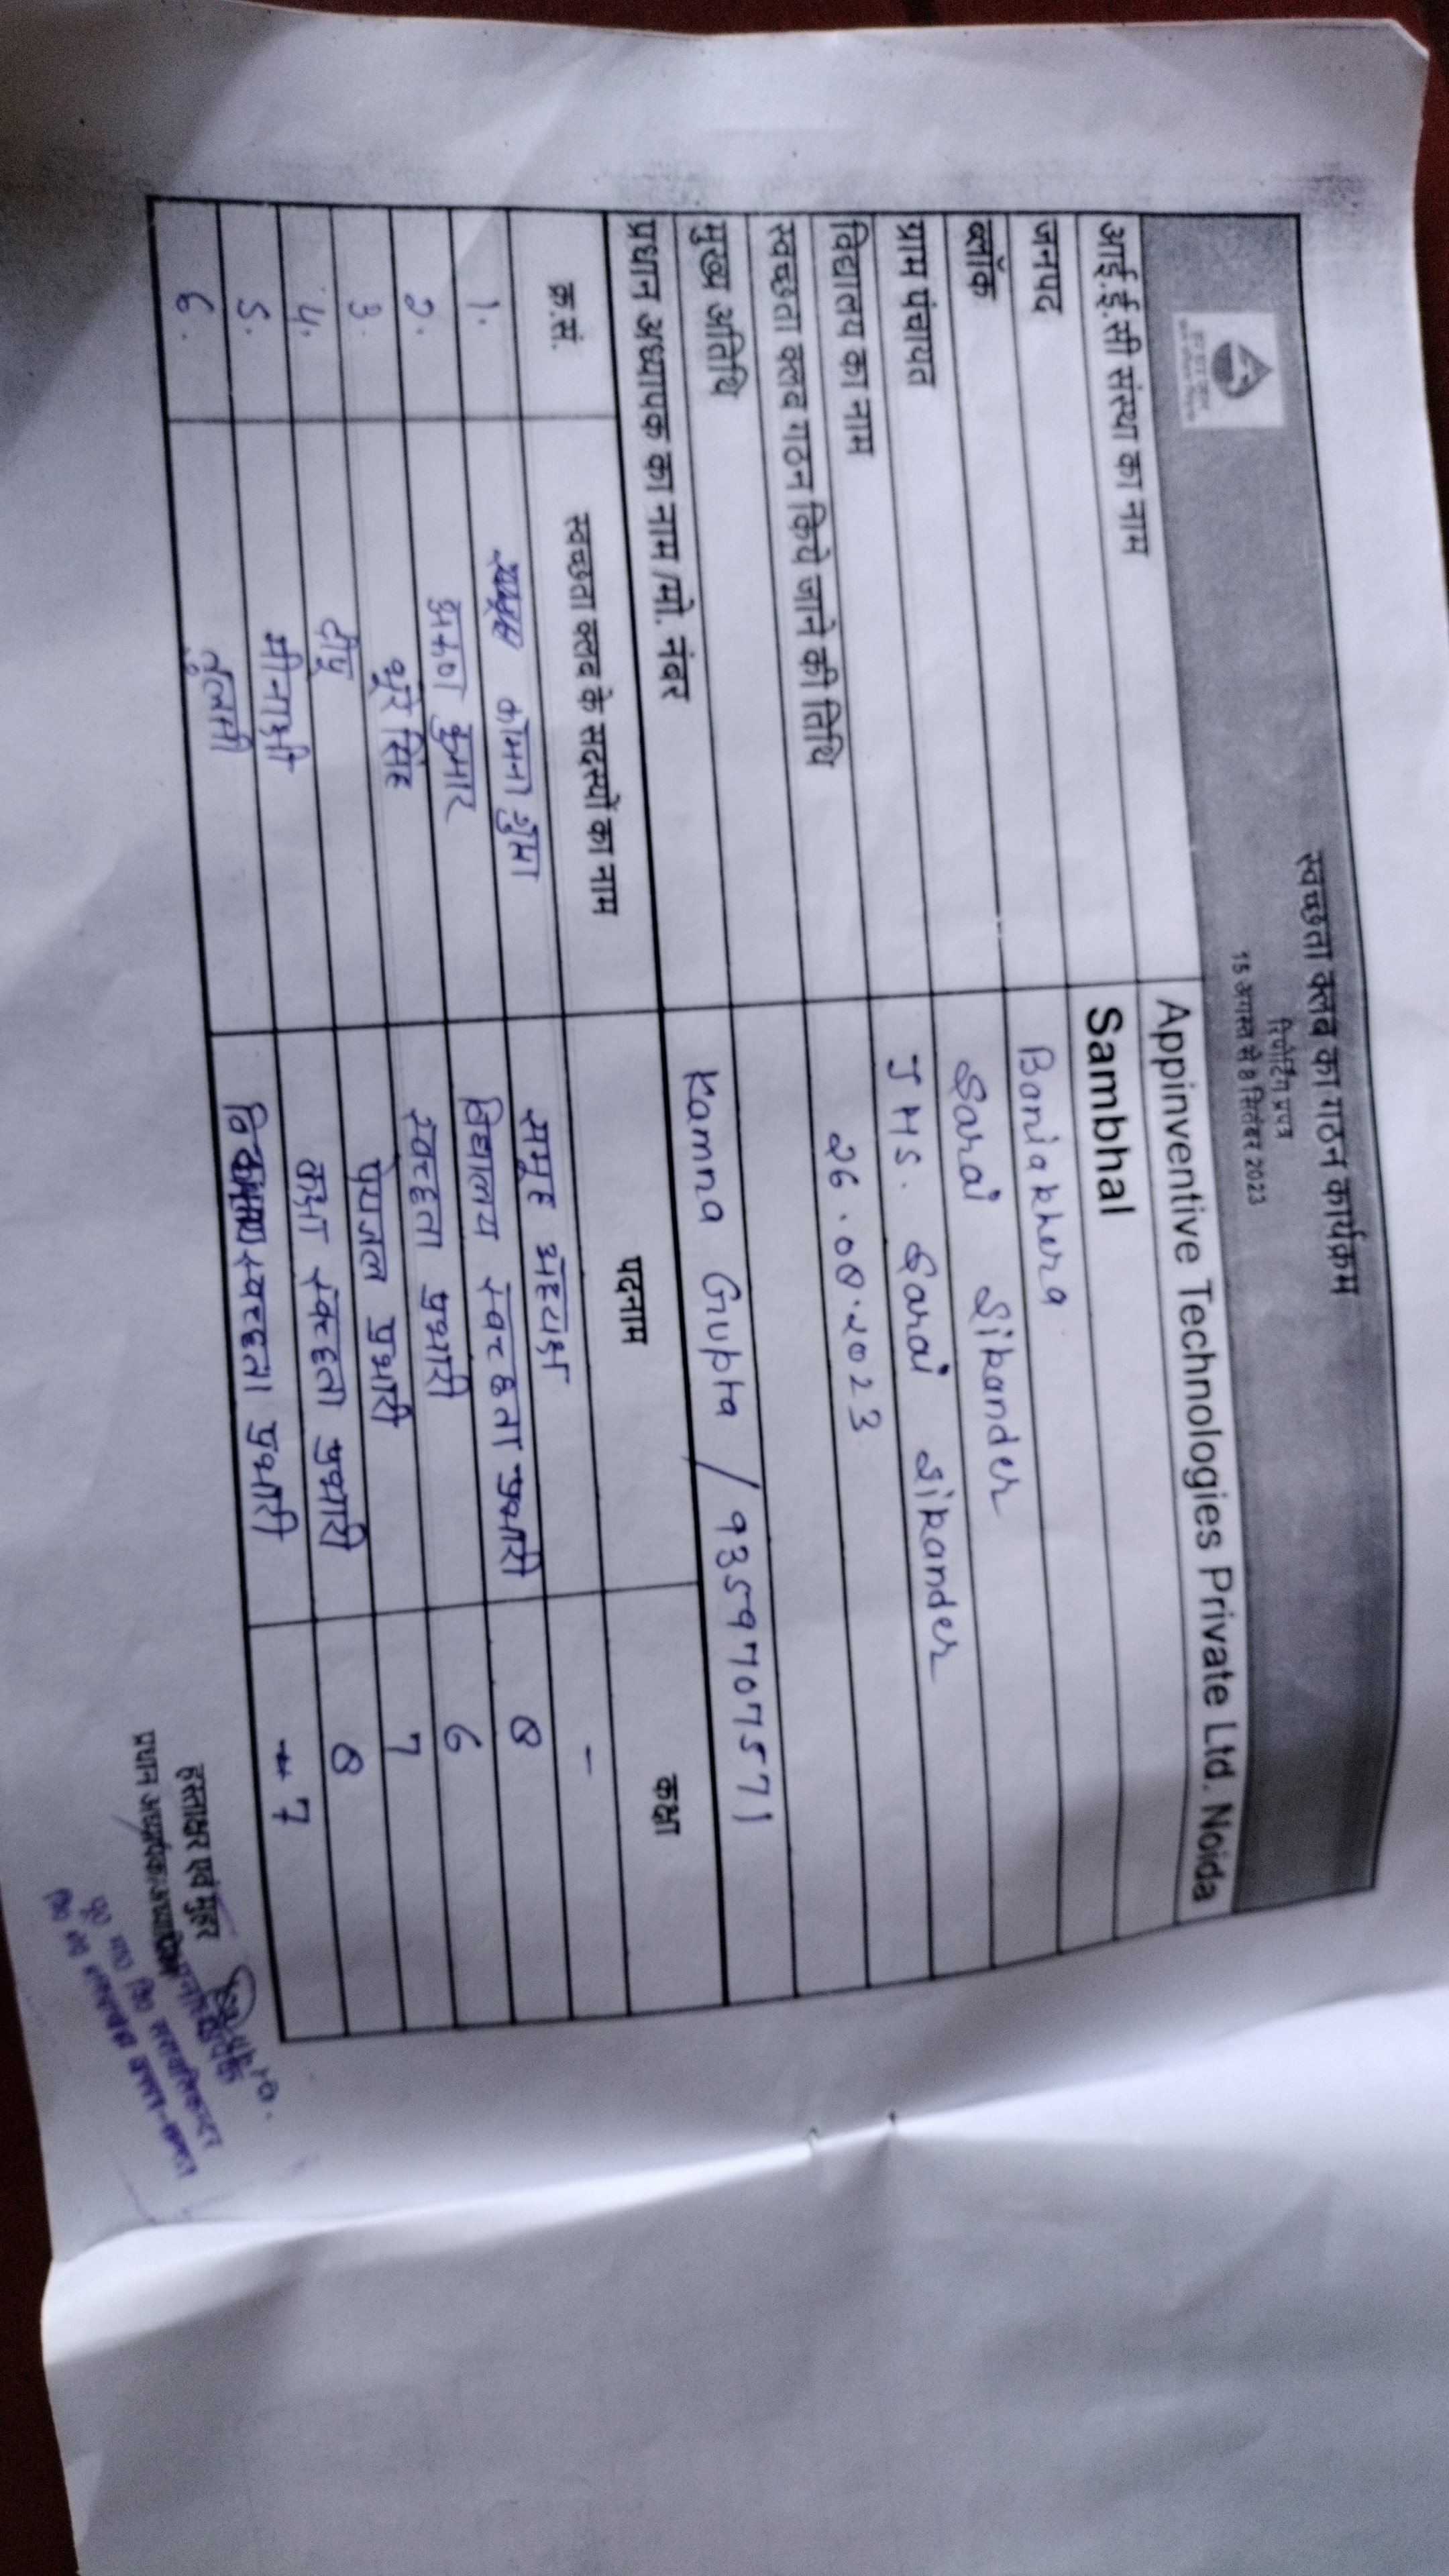 स्वच्छता क्लब का गठन कार्यक्रम
रिपोर्टिंग प्रपत्र
15 अगस्त से 8 सितंबर 2023
आई.ई.सी संस्था का नाम Appinventive Technologies Private Ltd. Noida
जनपद Sambhal
ब्लॉक Baniakhera
ग्राम पंचायत Sarai Sikander
विद्यालय का नाम JHS. Sarai Sikander
स्वच्छता क्लब गठन किये जाने की तिथि 26.08.2023
मुख्य अतिथि
प्रधान अध्यापक का नाम /मो. नंबर Kamna Gupta / 9359707571
क्र.सं. स्वच्छता क्लब के सदस्यों का नाम पदनाम कक्षा
1. कामना गुप्ता समूह अध्यक्ष -
2. अरुण कुमार विद्यालय स्वच्छता प्रभारी 8
3. भूरे सिंह स्वच्छता प्रभारी 6
4. टीपू पेयजल प्रभारी 7
5. मीनाक्षी कक्षा स्वच्छता प्रभारी 8
6. तुलसी स्वच्छता प्रभारी 7
हस्ताक्षर एवं मुहर
प्रधान